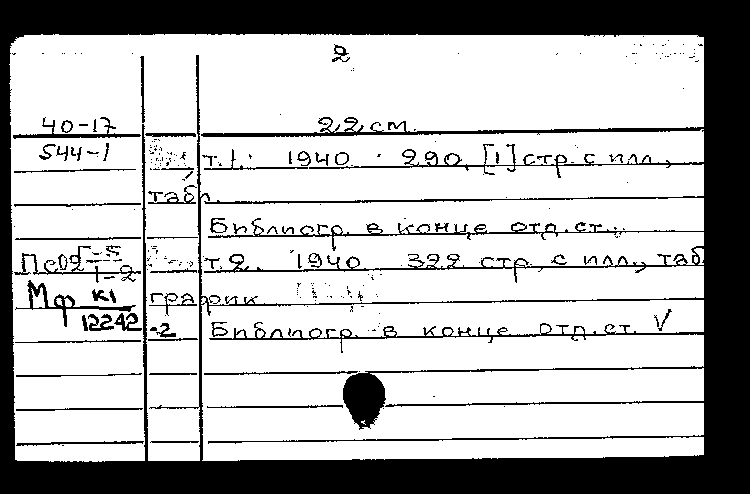 2
40-17 22 см.
544-1 т.1. 1940. 290, [1] стр. с илл.,
табл.
Библиогр. в конце отд. ст.
т.2. 1940. 322 стр. с илл., таб
Пс02 Г-5
1-2
Мф К1 график
12242 -2 Библиогр. в конце отд. ст. V